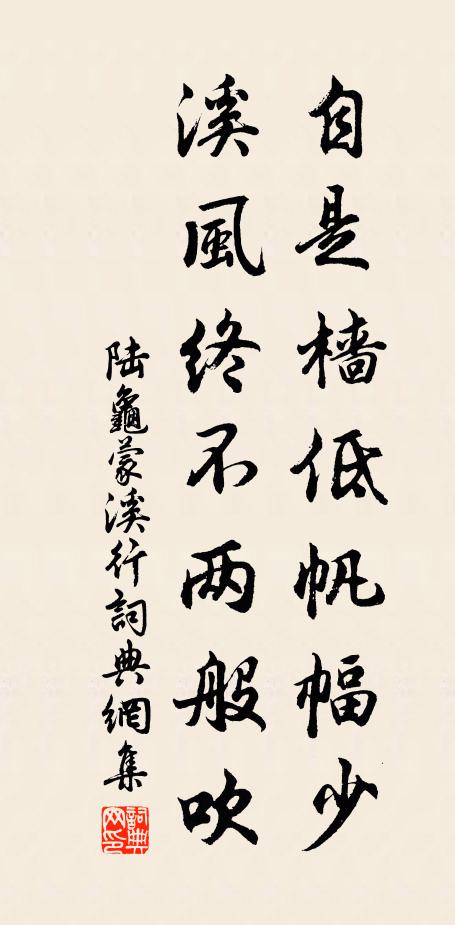 自是檣低帆幅少
溪風終不两般吹
陆龜蒙溪行詞典網集
詞典网印